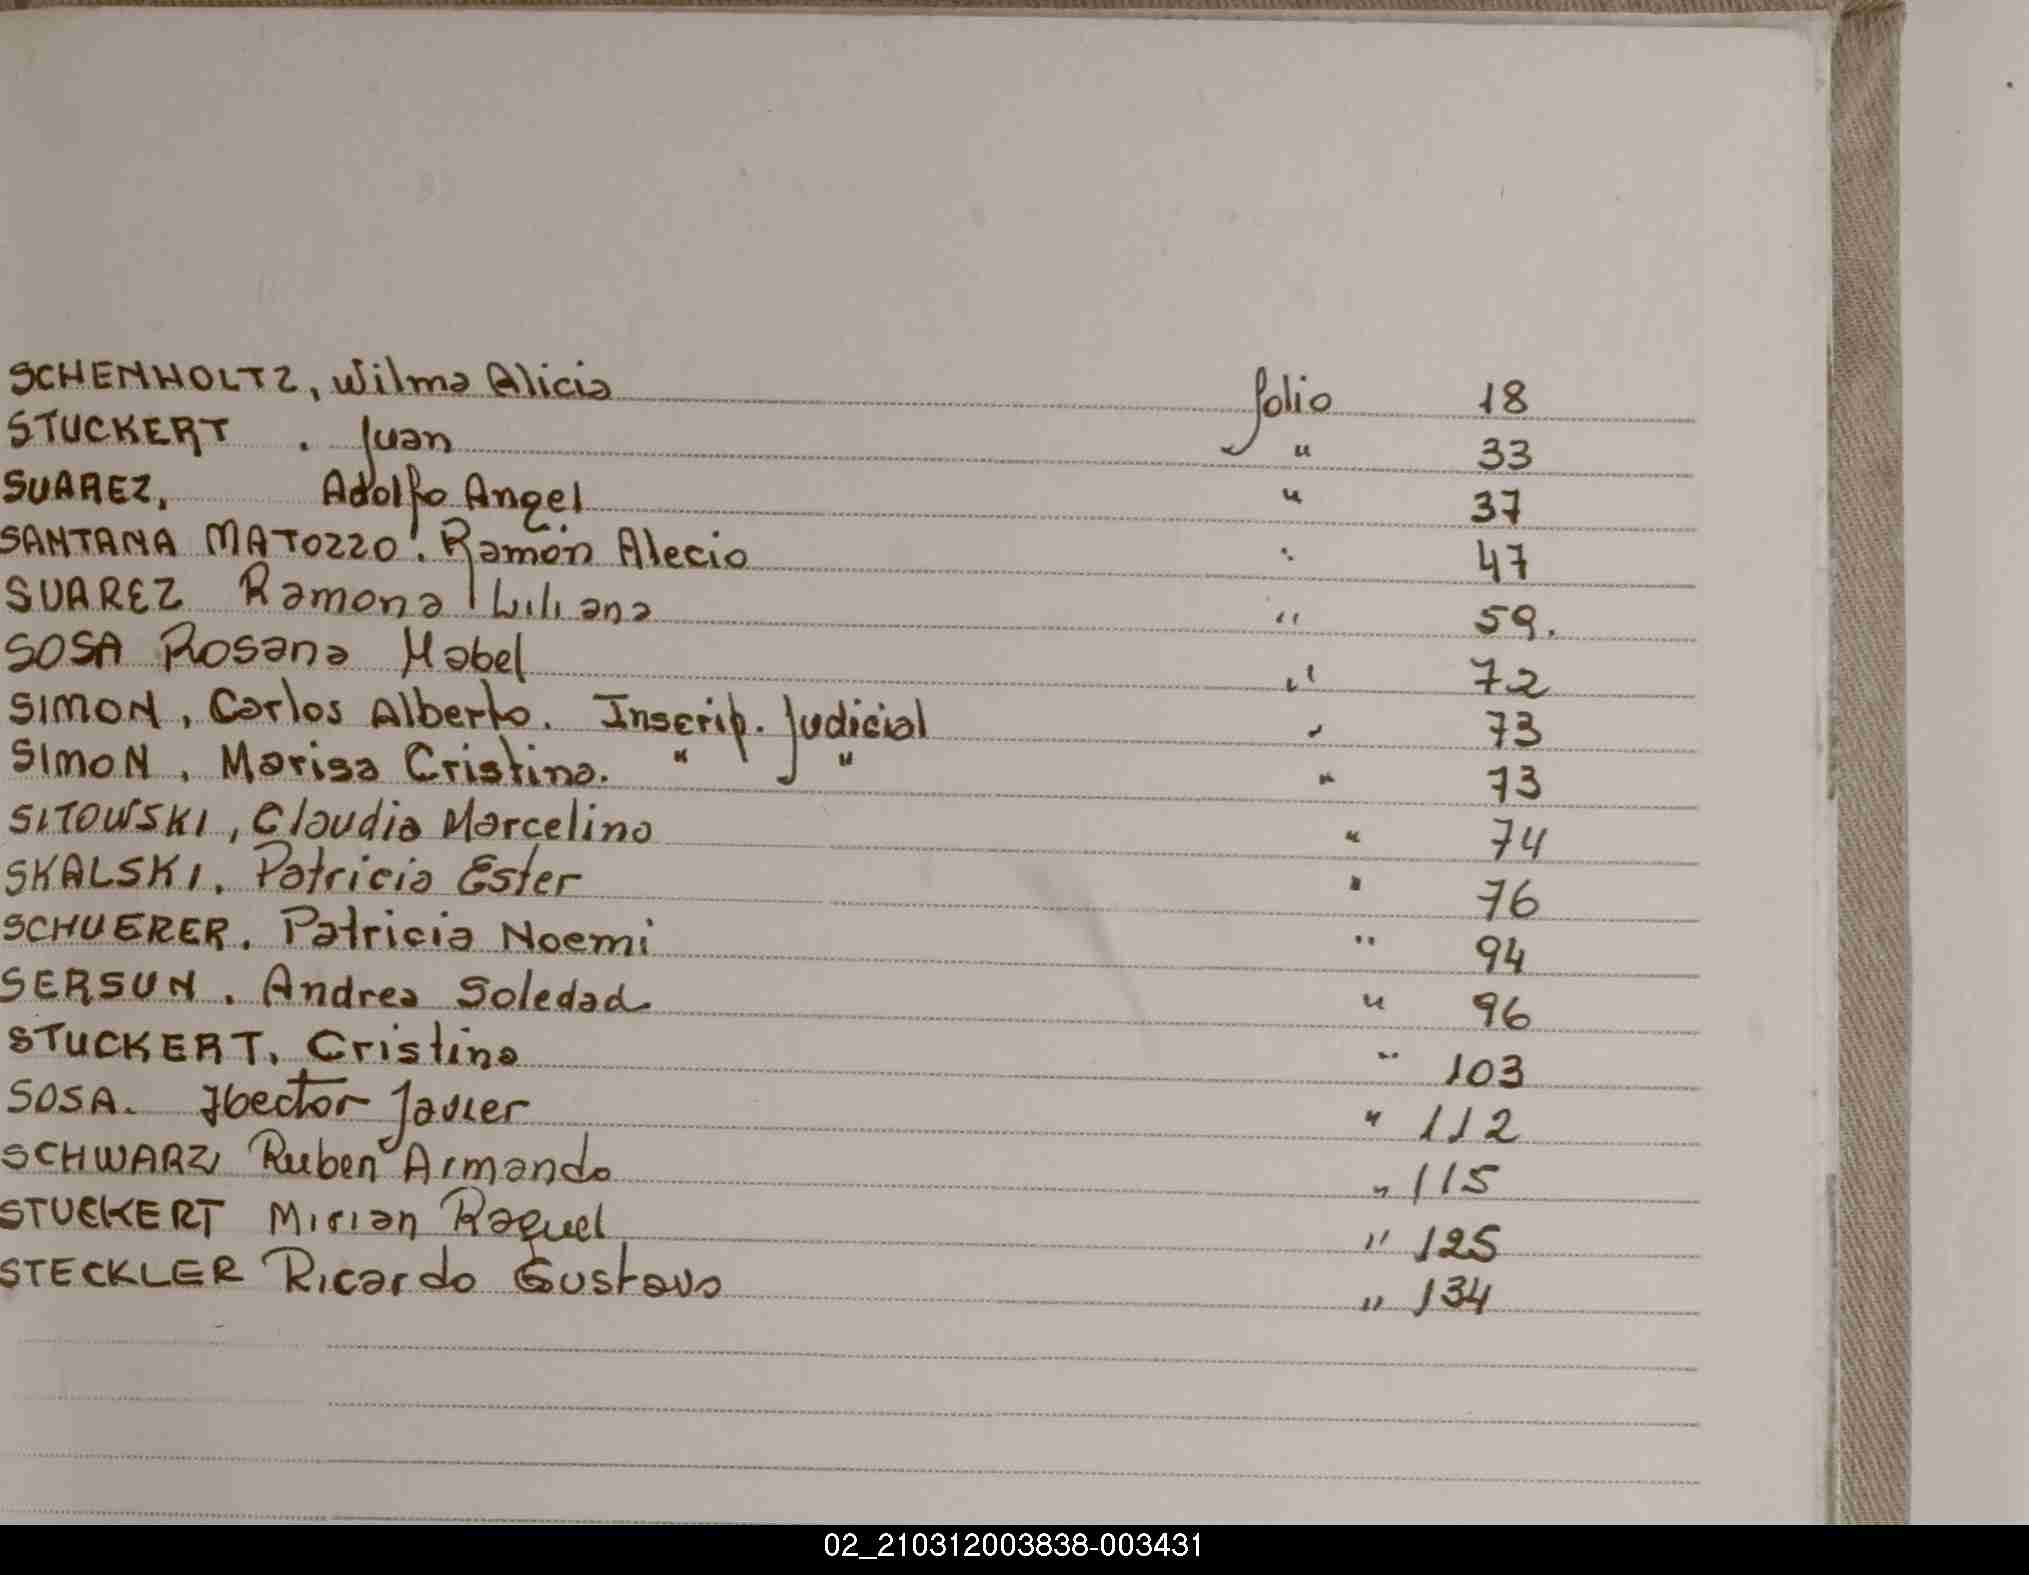 SCHENHOLTZ, Wilma Alicia folio 18
STUCKERT . Juan " 33
SUAREZ, Adolfo Angel " 37
SANTANA MATOZZO. Ramón Alecio " 47
SUAREZ Ramona Liliana " 59.
SOSA Rosana Mabel " 72
SIMON, Carlos Alberto. Inscrip. Judicial " 73
SIMON, Marisa Cristina. " " " 73
SITOWSKI, Claudia Marcelina " 74
SKALSKI, Patricia Ester " 76
SCHUERER. Patricia Noemi " 94
SERSUN. Andrea Soledad " 96
STUCKERT. Cristina " 103
SOSA. Hector Javier " 112
SCHWARZ, Ruben Armando " 115
STUCKERT Mirian Raquel " 125
STECKLER Ricardo Gustavo " 134
02_210312003838-003431